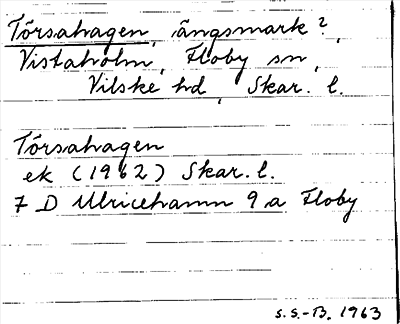 Törsahagen, ängsmark?,
Vistaholm, Floby sn,
Vilske hd, Skar. l.
Törsahagen
ek (1962) Skar. l.
7 D Ulricehamn 9 a Floby
S.S.-B. 1963